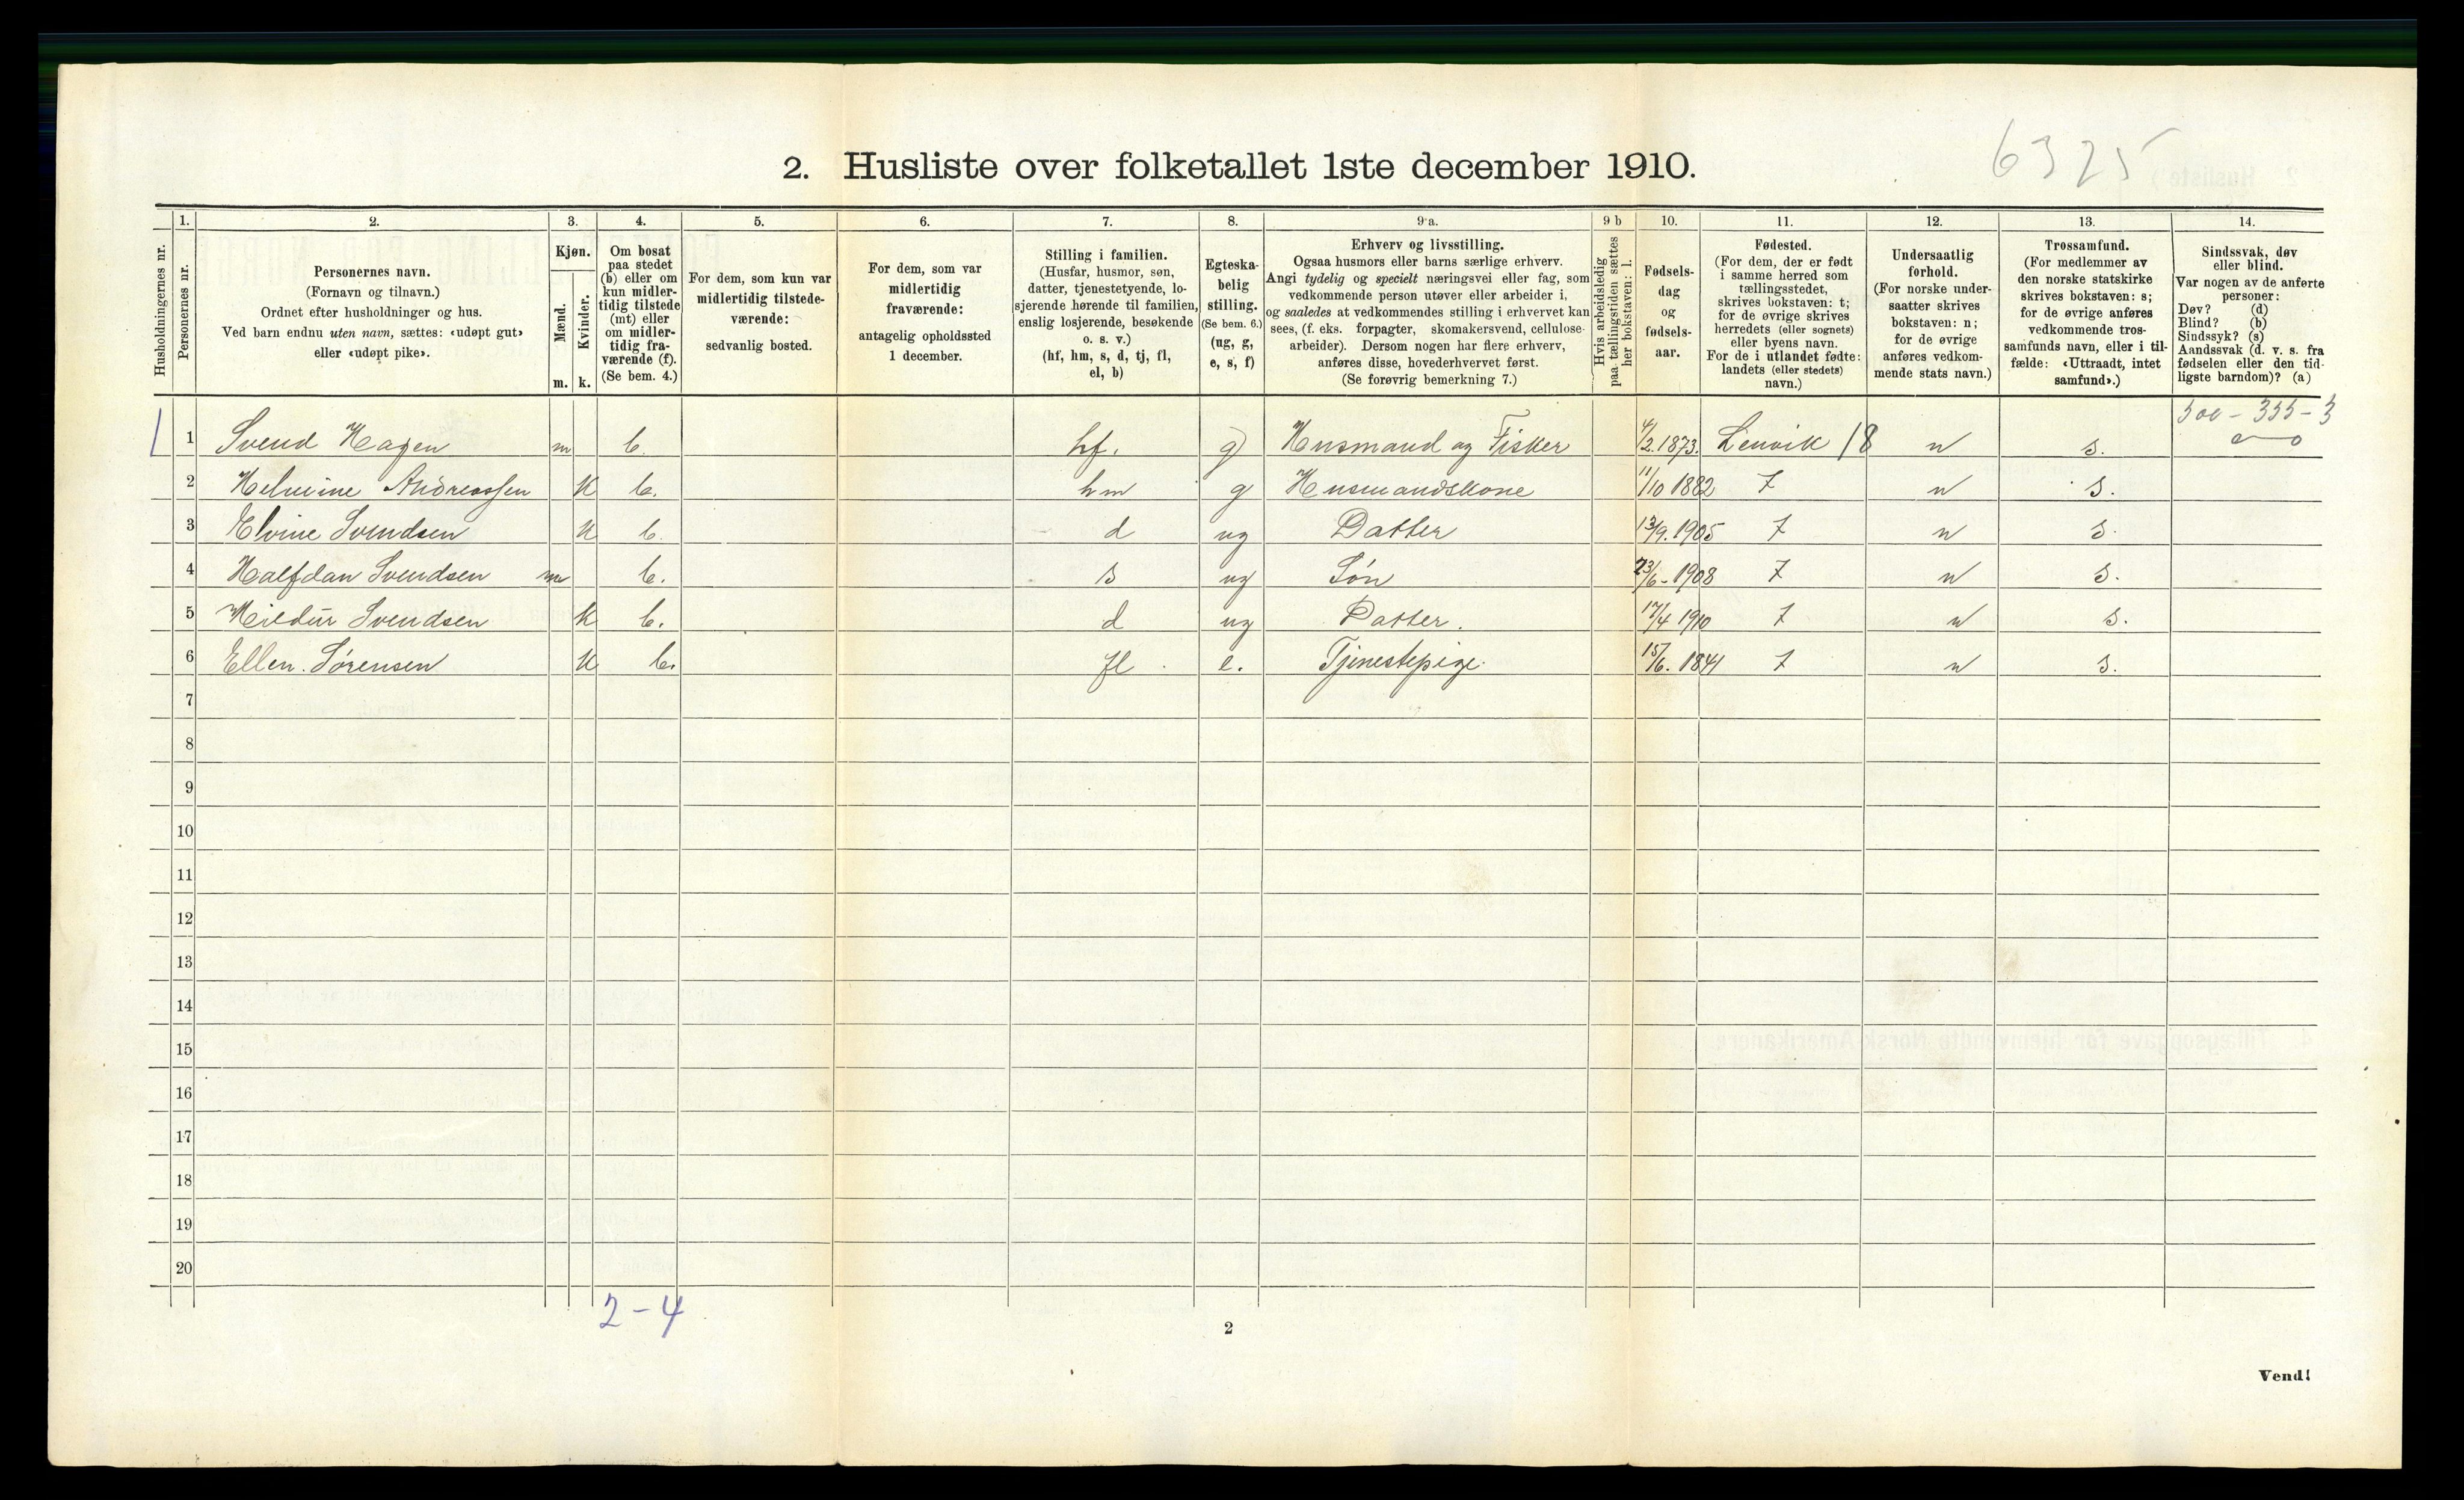 6325
2. Husliste over folketallet 1ste december 1910.
Husholdningernes nr.
1.
Personernes nr.
2.
Personernes navn.
(Fornavn og tilnavn.)
Ordnet efter husholdninger og hus.
Ved barn endnu uten navn, sættes: «udøpt gut»
eller «udøpt pike».
3.
Kjøn.
Mænd.
Kvinder.
m. k.
4.
Om bosat
paa stedet
(b) eller om
kun midler-
tidig tilstede
(mt) eller
om midler-
tidig fra-
værende (f).
(Se bem. 4.)
5.
For dem, som kun var
midlertidig tilstede-
værende:
sedvanlig bosted.
6.
For dem, som var
midlertidig
fraværende:
antagelig opholdssted
1 december.
7.
Stilling i familien.
(Husfar, husmor, søn,
datter, tjenestetyende, lo-
sjerende hørende til familien,
enslig losjerende, besøkende
o. s. v.)
(hf, hm, s, d, tj, fl,
el, b)
8.
Egteska-
belig
stilling.
(Se bem. 6.)
(ug, g,
e, s, f)
9 a.
Erhverv og livsstilling.
Ogsaa husmors eller barns særlige erhverv.
Angi tydelig og specielt næringsvei eller fag, som
vedkommende person utøver eller arbeider i,
og saaledes at vedkommendes stilling i erhvervet kan
sees, (f. eks. forpagter, skomakersvend, cellulose-
arbeider). Dersom nogen har flere erhverv,
anføres disse, hovederhvervet først.
(Se forøvrig bemerkning 7.)
9 b
Hvis arbeidsledig
paa tællingstiden sættes
her bokstaven: l.
10.
Fødsels-
dag
og
fødsels-
aar.
11.
Fødested.
(For dem, der er født
i samme herred som
tællingsstedet,
skrives bokstaven: t;
for de øvrige skrives
herredets (eller sognets)
eller byens navn.
For de i utlandet fødte:
landets (eller stedets)
navn.)
12.
Undersaatlig
forhold.
(For norske under-
saatter skrives
bokstaven: n;
for de øvrige
anføres vedkom-
mende stats navn.)
13.
Trossamfund.
(For medlemmer av
den norske statskirke
skrives bokstaven: s;
for de øvrige anføres
vedkommende tros-
samfunds navn, eller i til-
fælde: «Uttraadt, intet
samfund».)
14.
Sindssvak, døv
eller blind.
Var nogen av de anførte
personer:
Døv? (d)
Blind? (b)
Sindssyk? (s)
Aandssvak (d. v. s. fra
fødselen eller den tid-
ligste barndom)? (a)
1 1 Svend Hagen m b. hf. g Husmand og Fisker 4/2.1873. Lenvik 18 n s.
2 Helmine Andreassen K b. hm g Husmandskone 11/10 1882 t n s.
3 Elvine Svendsen K b. d ug Datter 13/9.1905 t n s.
4 Halfdan Svendsen m b. s ug Søn 23/6-1908 t n s.
5 Hildur Svendsen K b. d ug Datter. 17/4 1910 t n s.
6 Ellen. Sørensen K b. fl e. Tjenestepige. 15/6. 1841 t n s.
7
8
9
10
11
12
13
14
15
16
17
18
19
20
2-4
2
Vend!